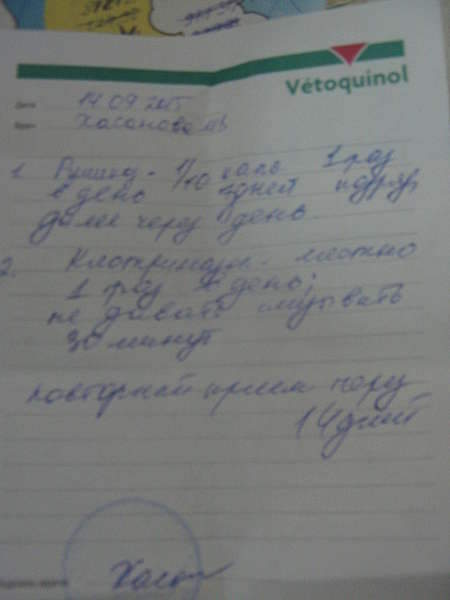 Vétoquinol
Дата 14.09.2015
Врач Хасанова
1. 1/10 капс 1 раз
в день 7 дней подряд,
далее через день
2. Клотримазол - местно
1 раз в день,
не давать слизывать
30 минут
повторный прием через
14 дней